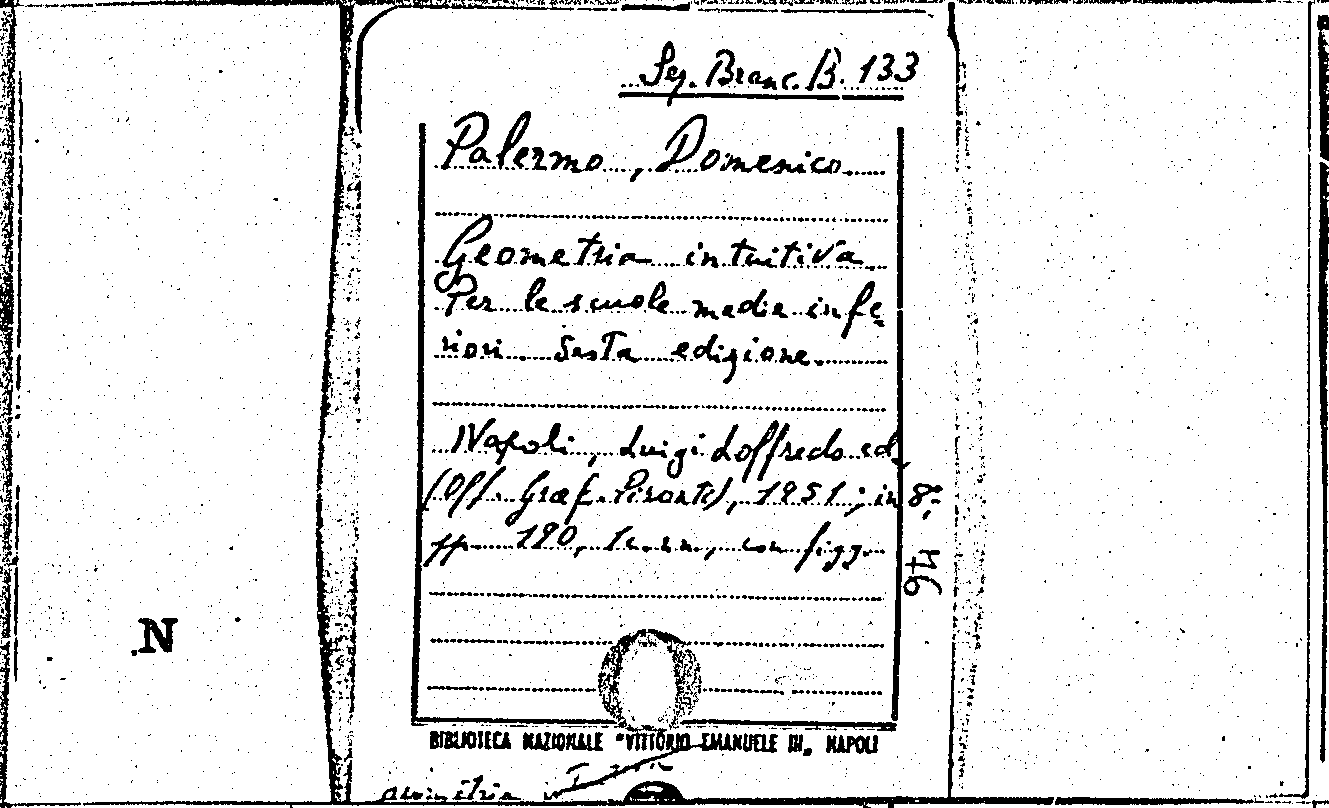 Sez. Branc. B. 133
Palermo, Domenico
Geometria intuitiva
Per le scuole medie infe-
riori. Sesta edizione.
Napoli, Luigi Loffredo ed.
(Off. Graf. Pironti), 1951; in 8°;
pp. 190, 1c.nn., con figg.
46
N
BIBLIOTECA NAZIONALE "VITTORIO EMANUELE III„ NAPOLI